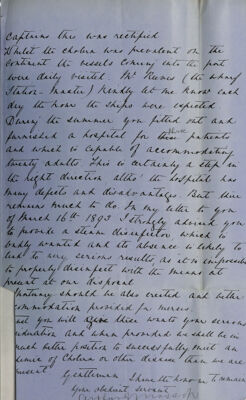 Captains this was rectified
Whilst the cholera was prevalent on the
continent the vessels coming into the port
were daily visited. Mr (the wharf
Station-Master) kindly let me know each
day the hour the ships were expected
During the summer you fitted out and
furnished a hospital for these patients
and which is capable of accommodating
twenty adults. This is certainly a step in
the right direction altho' the hospital has
many defects and disadvantages. But there
remains much to do. In my letter to you
of March 16th 1893 I strongly advised you
to provide a steam disinfector which is
badly wanted and its absence is likely to
lead to very serious results, as it is impossible
to properly disinfect with the means at
present at our disposal
Mortuary should be also erected and better
accommodation provided for nurses
you will give these wants your serious
consideration and when provided we shall be in
much better position to successfully meet an
epidemic of Cholera or other disease than we are
present
Gentlemen I have the honour to remain
your obedient servant